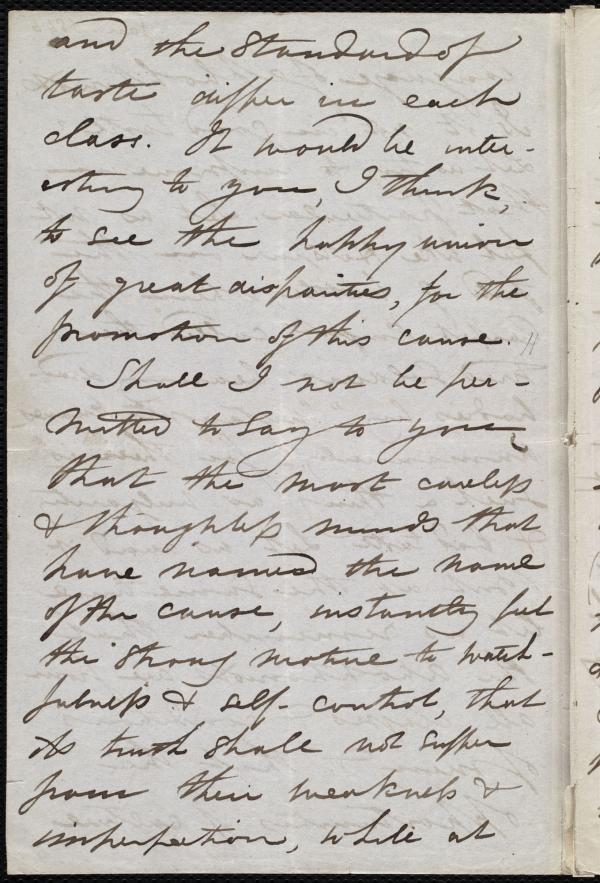 and the standard of
taste differ in each
class. It would be inter-
esting to you, I think,
to see the happy union
of great disparities, for the
promotion of this cause.
Shall I not be per-
mitted to say to you
that the most careless
& thoughtless minds that
have named the name
of the cause, instantly feel
the strong motive to watch-
fulness & self-control, that
its truth shall not suffer
from their weakness &
imperfection, while at